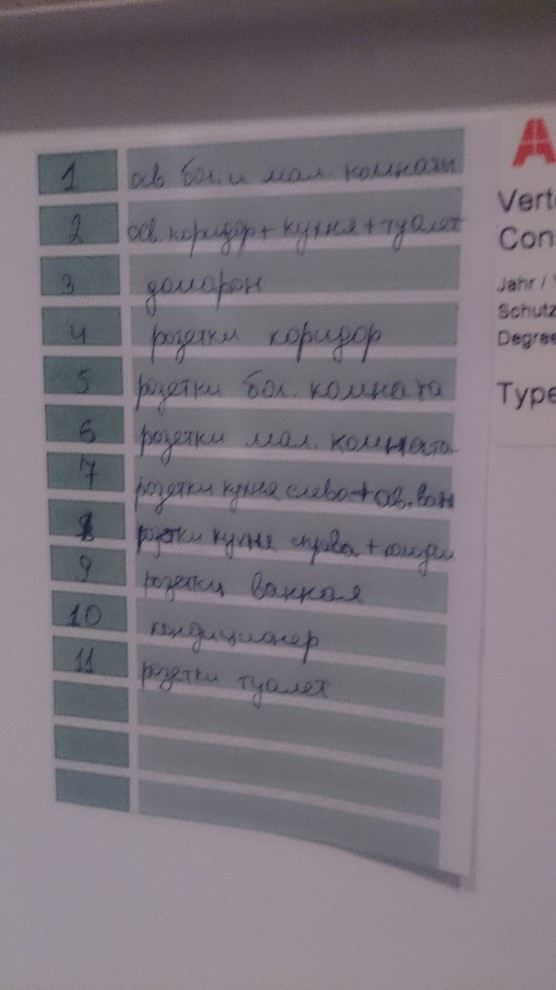 1 осв. бол. и мал. комнаты
2 осв. коридор + кухня + туалет
3 домофон
4 розетки коридор
5 розетки бол. комната
6 розетки мал. комната
7 розетки кухня слево + осв. ван
8 розетки кухня справа +
9 розетки ванная
10 кондиционер
11 розетки туалет
A
Vert
Con
Jahr /
Schutz
Degree
Type